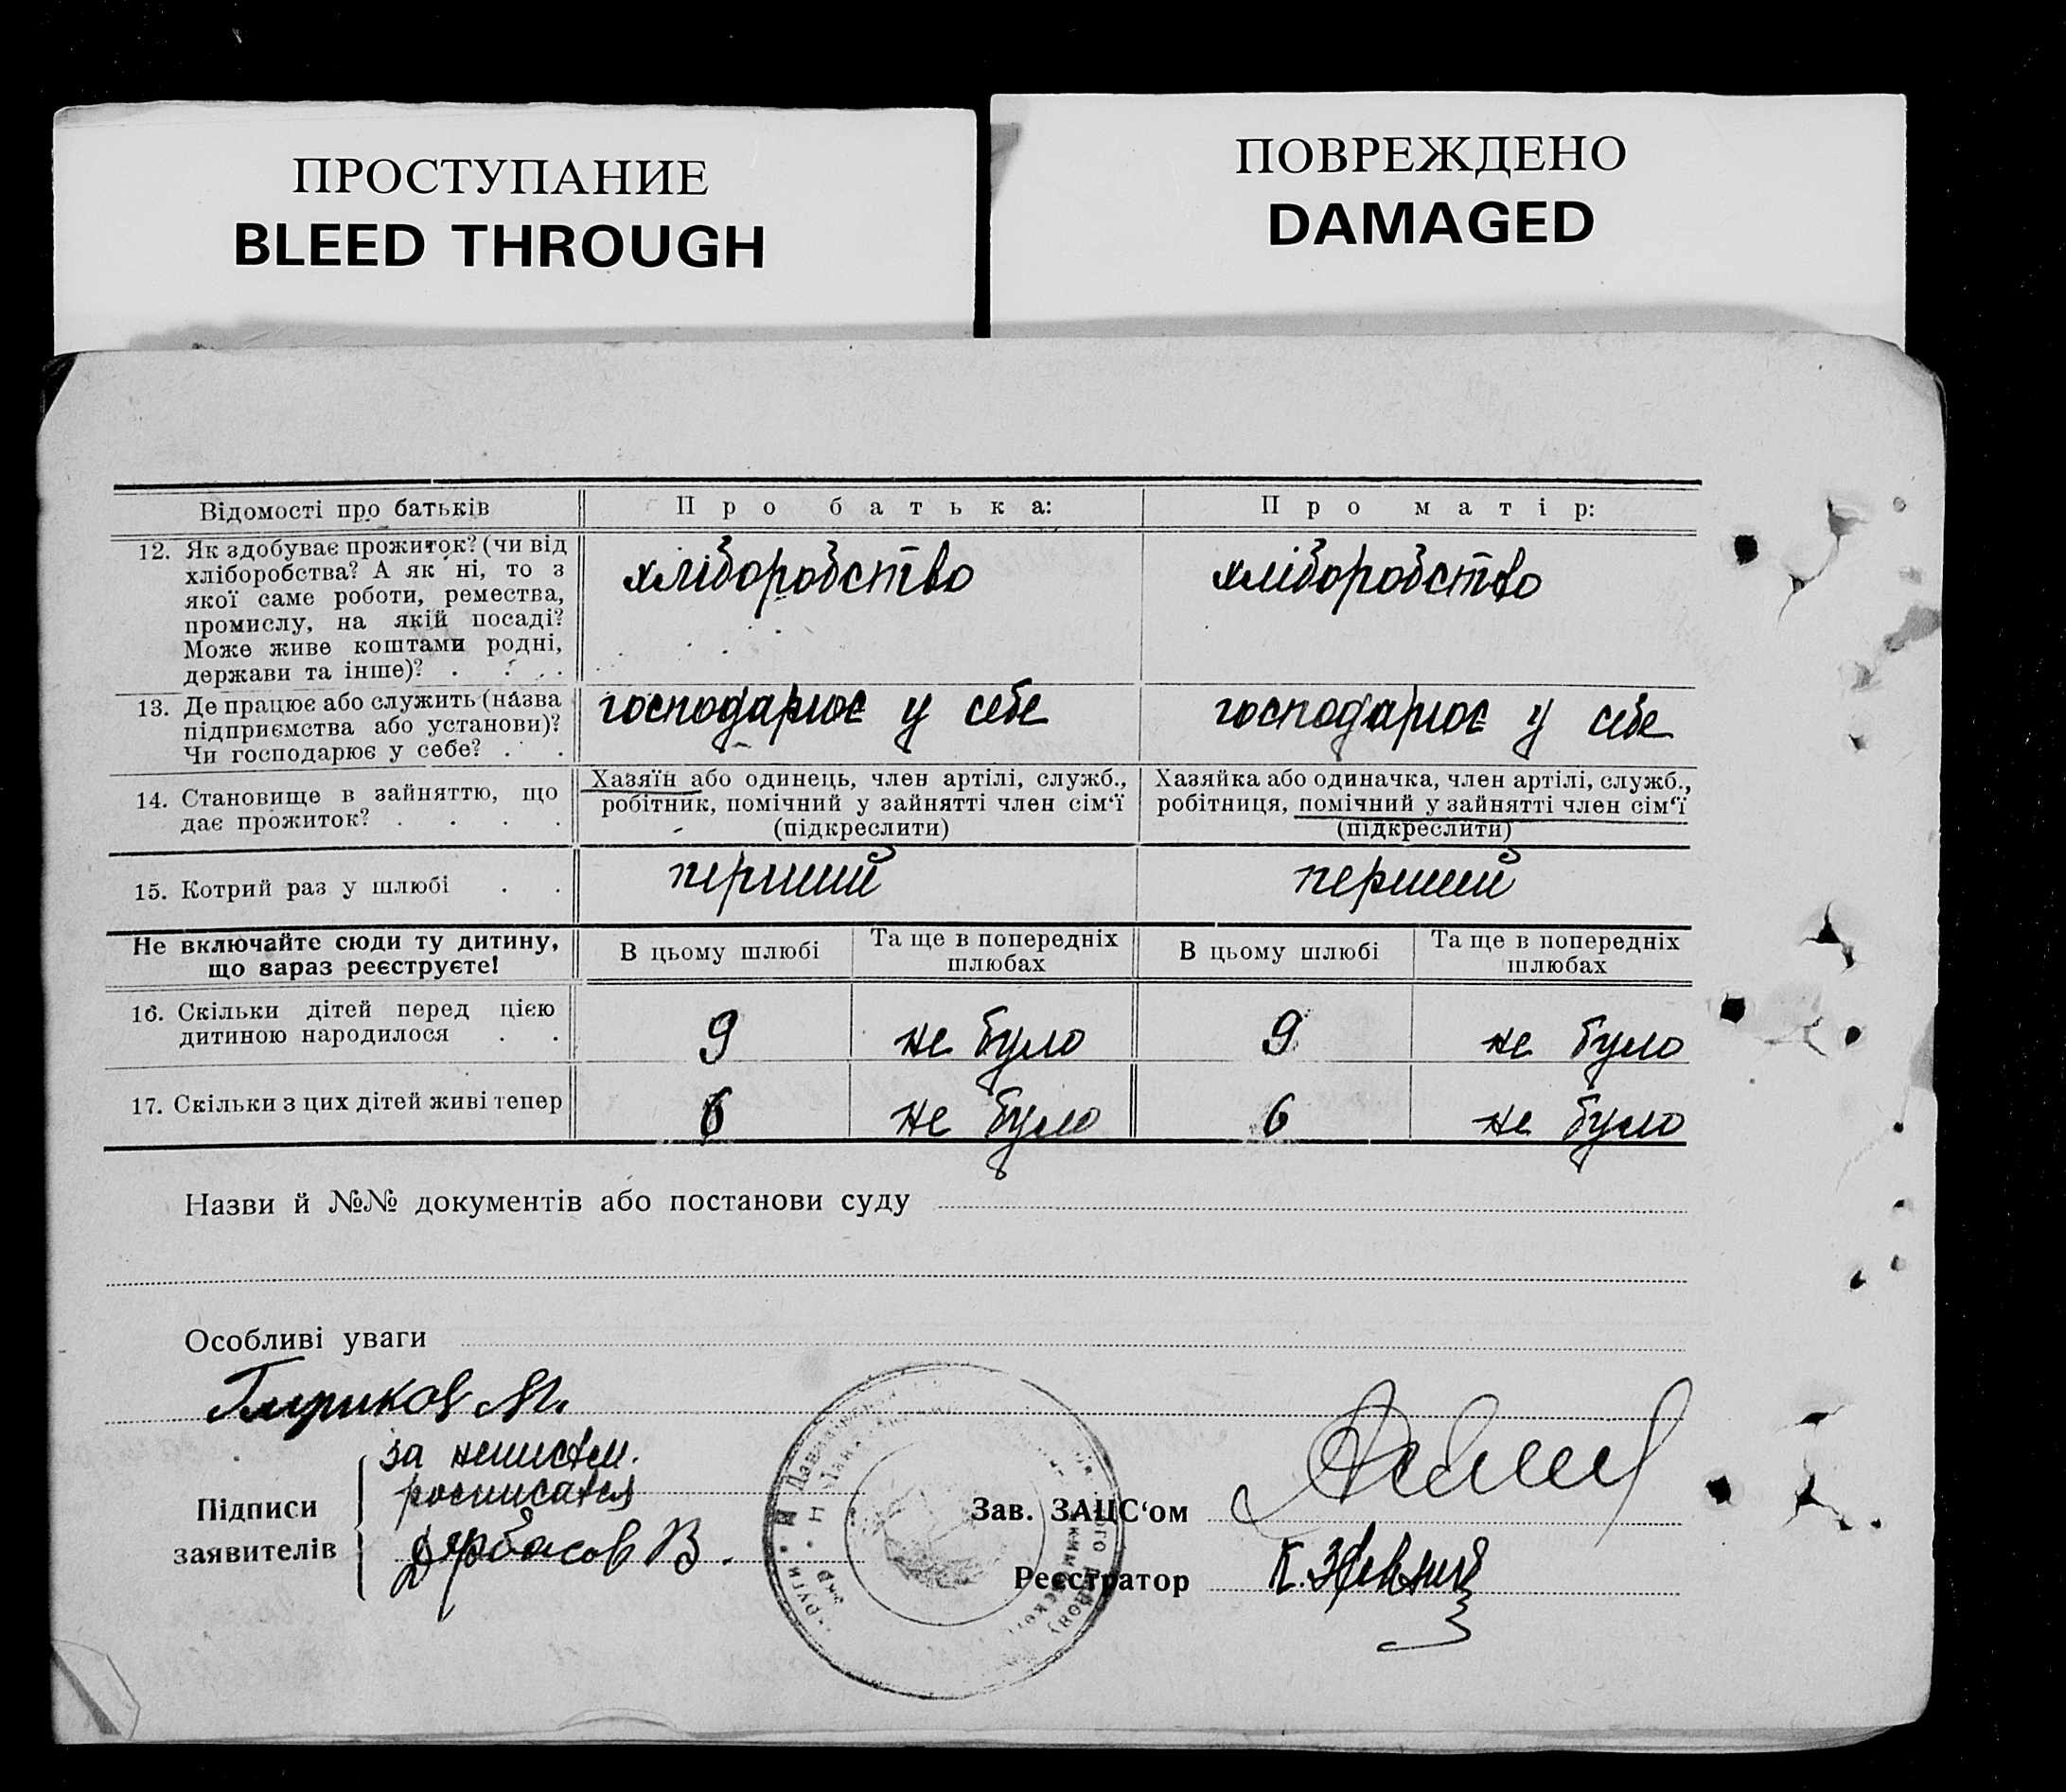 ПРОСТУПАНИЕ
BLEED THROUGH
ПОВРЕЖДЕНО
DAMAGED
Відомості про батьків
Про батька:
Про матір:
12. Як здобуває прожиток? (чи від
хліборобства? А як ні, то з
якої саме роботи, ремества,
промислу, на якій посаді?
Може живе коштами родні,
держави та інше)? . . . .
хліборобство
хліборобство
13. Де працює або служить (назва
підприємства або установи)?
Чи господарює у себе? . .
господарює у себе
господарює у себе
14. Становище в зайняттю, що
дає прожиток? . . . .
Хазяїн або одинець, член артілі, служб.,
робітник, помічний у зайнятті член сім'ї
(підкреслити)
Хазяйка або одиначка, член артілі, служб.,
робітниця, помічний у зайнятті член сім'ї
(підкреслити)
15. Котрий раз у шлюбі . .
перший
перший
Не включайте сюди ту дитину,
що зараз реєструєте!
В цьому шлюбі
Та ще в попередніх
шлюбах
В цьому шлюбі
Та ще в попередніх
шлюбах
16. Скільки дітей перед цією
дитиною народилося . .
9
не було
9
не було
17. Скільки з цих дітей живі тепер
6
не було
6
не було
Назви й №№ документів або постанови суду
Особливі уваги
за
Підписи
заявителів
Дербасов В.
Зав. ЗАЦС‘ом
Реєстратор